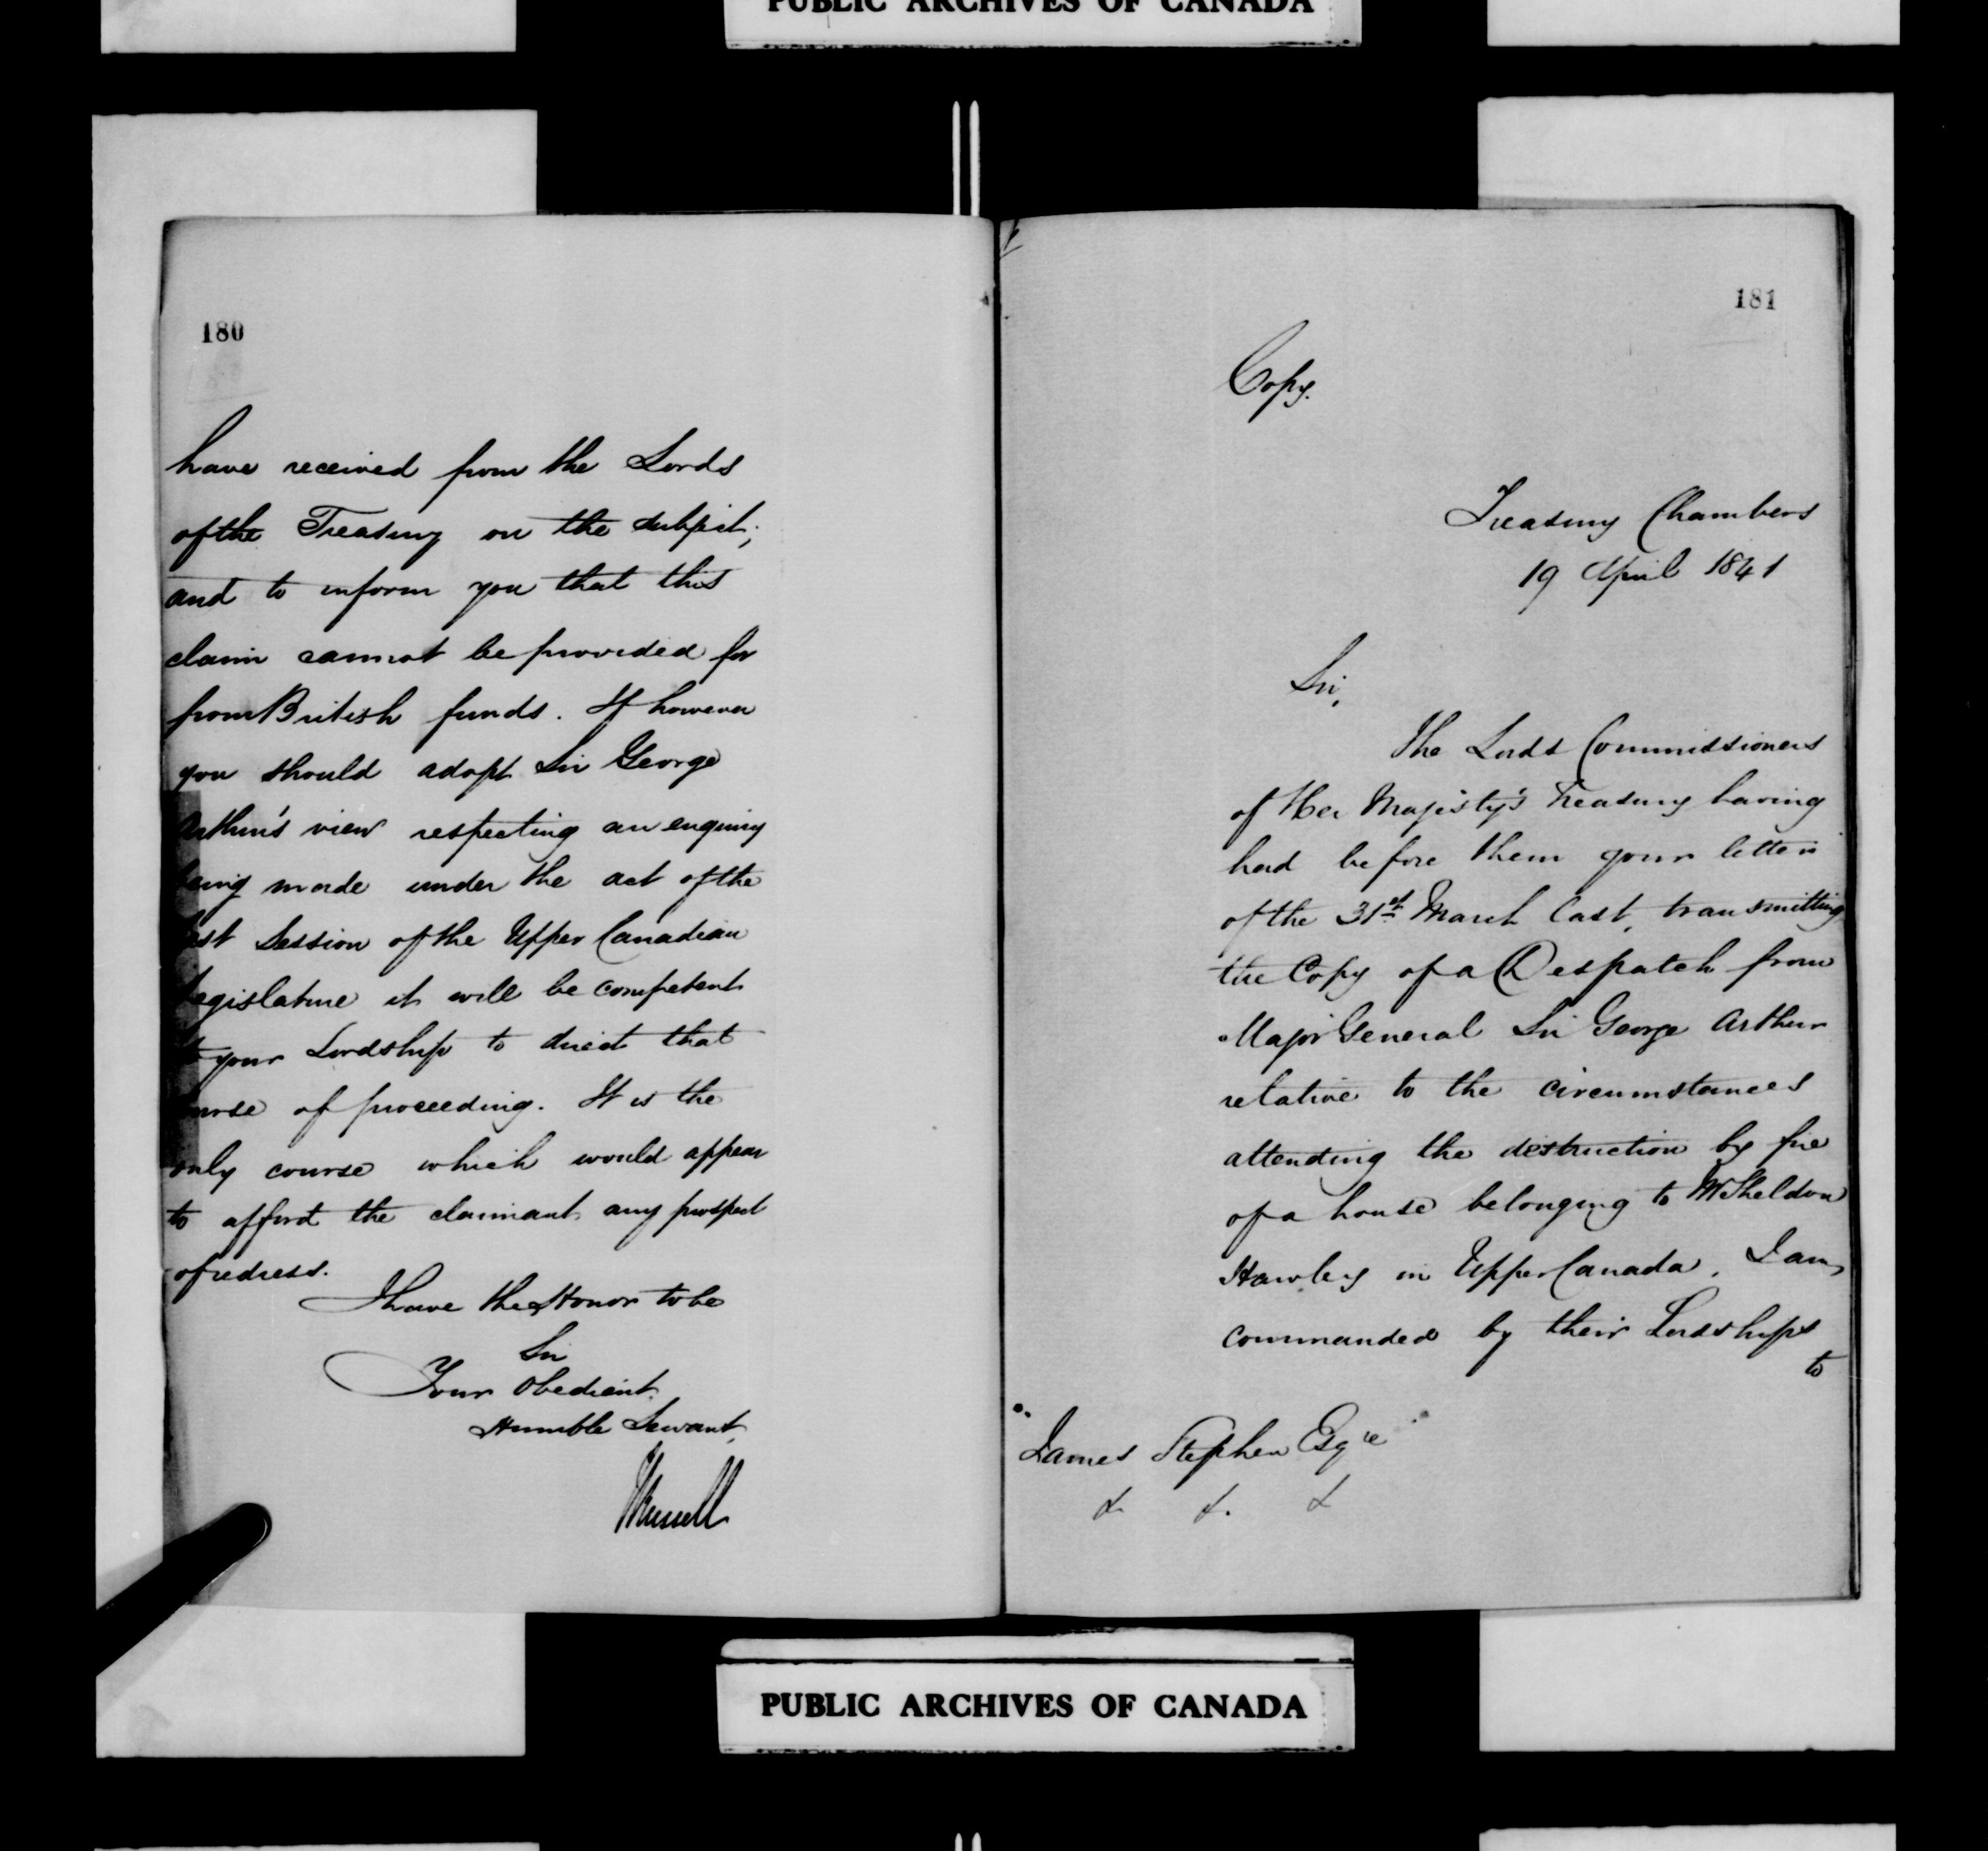 PUBLIC ARCHIVES OF CANADA
180
have received from the Lords
of the Treasury on the subject;
and to inform you that this
claim cannot be provided for
from British funds. If however
you should adopt Sir George
Arthur's view respecting an enquiry
being made under the act of the
last Session of the Upper Canadian
Legislature it will be competent
to your Lordship to direct that
course of proceeding. It is the
only course which would appear
to afford the claimant any prospect
of redress.
I have the Honor to be
Sir
Your Obedient
Humble Servant,
JRussell
181
Copy.
Treasury Chambers
19 April 1841
Sir,
The Lords Commissioners
of Her Majesty's Treasury having
had before them your letter
of the 31st March last, transmitting
the Copy of a Despatch from
Major General Sir George Arthur
relative to the circumstances
attending the destruction by fire
of a house belonging to Mr Sheldon
Hawley in Upper Canada, I am
commanded by their Lordships
to
James Stephen Esqre
& &. &
PUBLIC ARCHIVES OF CANADA